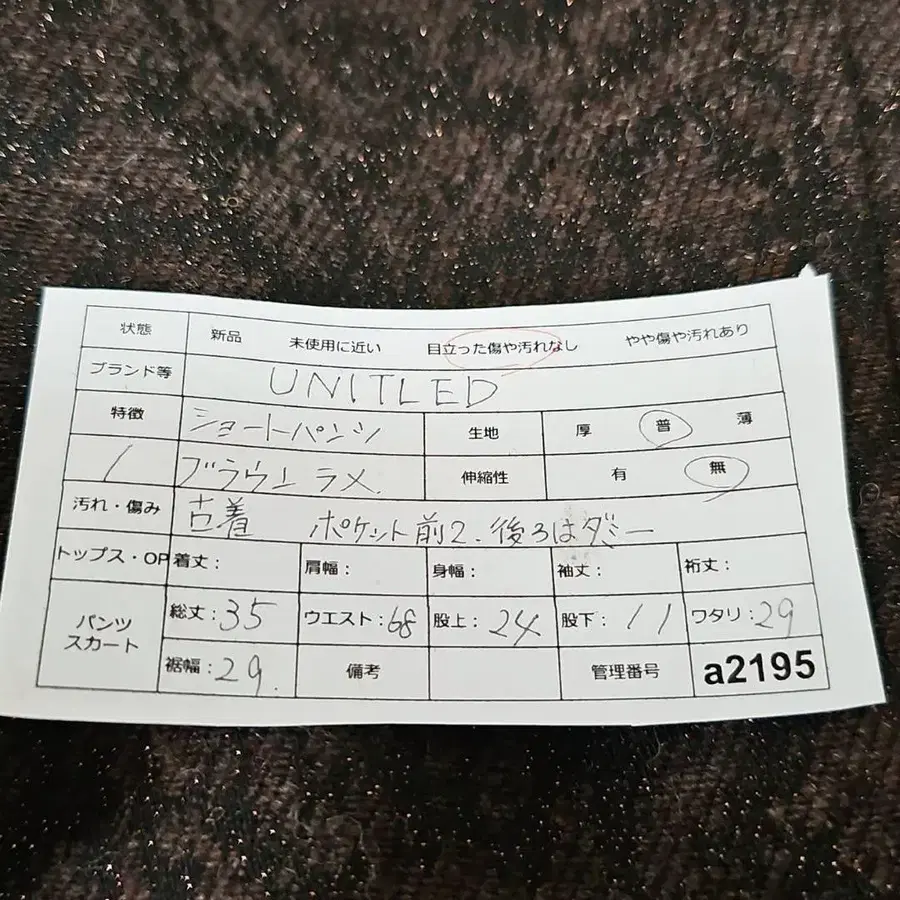 状態 新品 未使用に近い 目立った傷や汚れなし やや傷や汚れあり
ブランド等 UNITLED
特徴 ショートパンツ 生地 厚 普 薄
/ ブラウン ラメ. 伸縮性 有 無
汚れ・傷み 古着 ポケット前2.後ろはダミー
トップス・OP 着丈: 肩幅: 身幅: 袖丈: 裄丈:
パンツ スカート 総丈:35 ウエスト:68 股上:24 股下:11 ワタリ:29
裾幅:29. 備考 管理番号 a2195